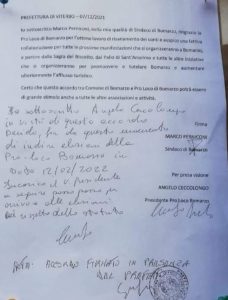 PREFETTURA DI VITERBO - 07/12/2021
Io sottoscritto Marco Perniconi, nella mia qualità di Sindaco di Bomarzo, ringrazio la
Pro Loco di Bomarzo per l'ottimo lavoro di risanamento dei conti e auspico una fattiva
collaborazione per tutte le prossime manifestazioni che si organizzeranno a Bomarzo,
a partire dalla Sagra del Biscotto, dal Palio di Sant'Anselmo e tutte le altre iniziative
che si organizzeranno per promuovere e tutelare Bomarzo e aumentare
ulteriormente l'afflusso turistico.
Certo che questo accordo tra Comune di Bomarzo e Pro Loco di Bomarzo potrà essere
di grande stimolo anche a tutte le altre associazioni e attività.
Io sottoscritto Angelo Ceccolongo
in visti di questo accordo
fin da questo momento
di indire elezioni della
Pro-loco Bomarzo in
Data 12/02/2022
Firma
MARCO PERNICONI
Sindaco di Bomarzo
il V. presidente
a seguire passo passo per
arrivare alle elezioni
nel rispetto dello statuto
Per presa visione
ANGELO CECCOLONGO
Presidente Pro Loco Bomarzo
NOTA: ACCORDO FIRMATO IN PRESENZA
DEL PREFETTO